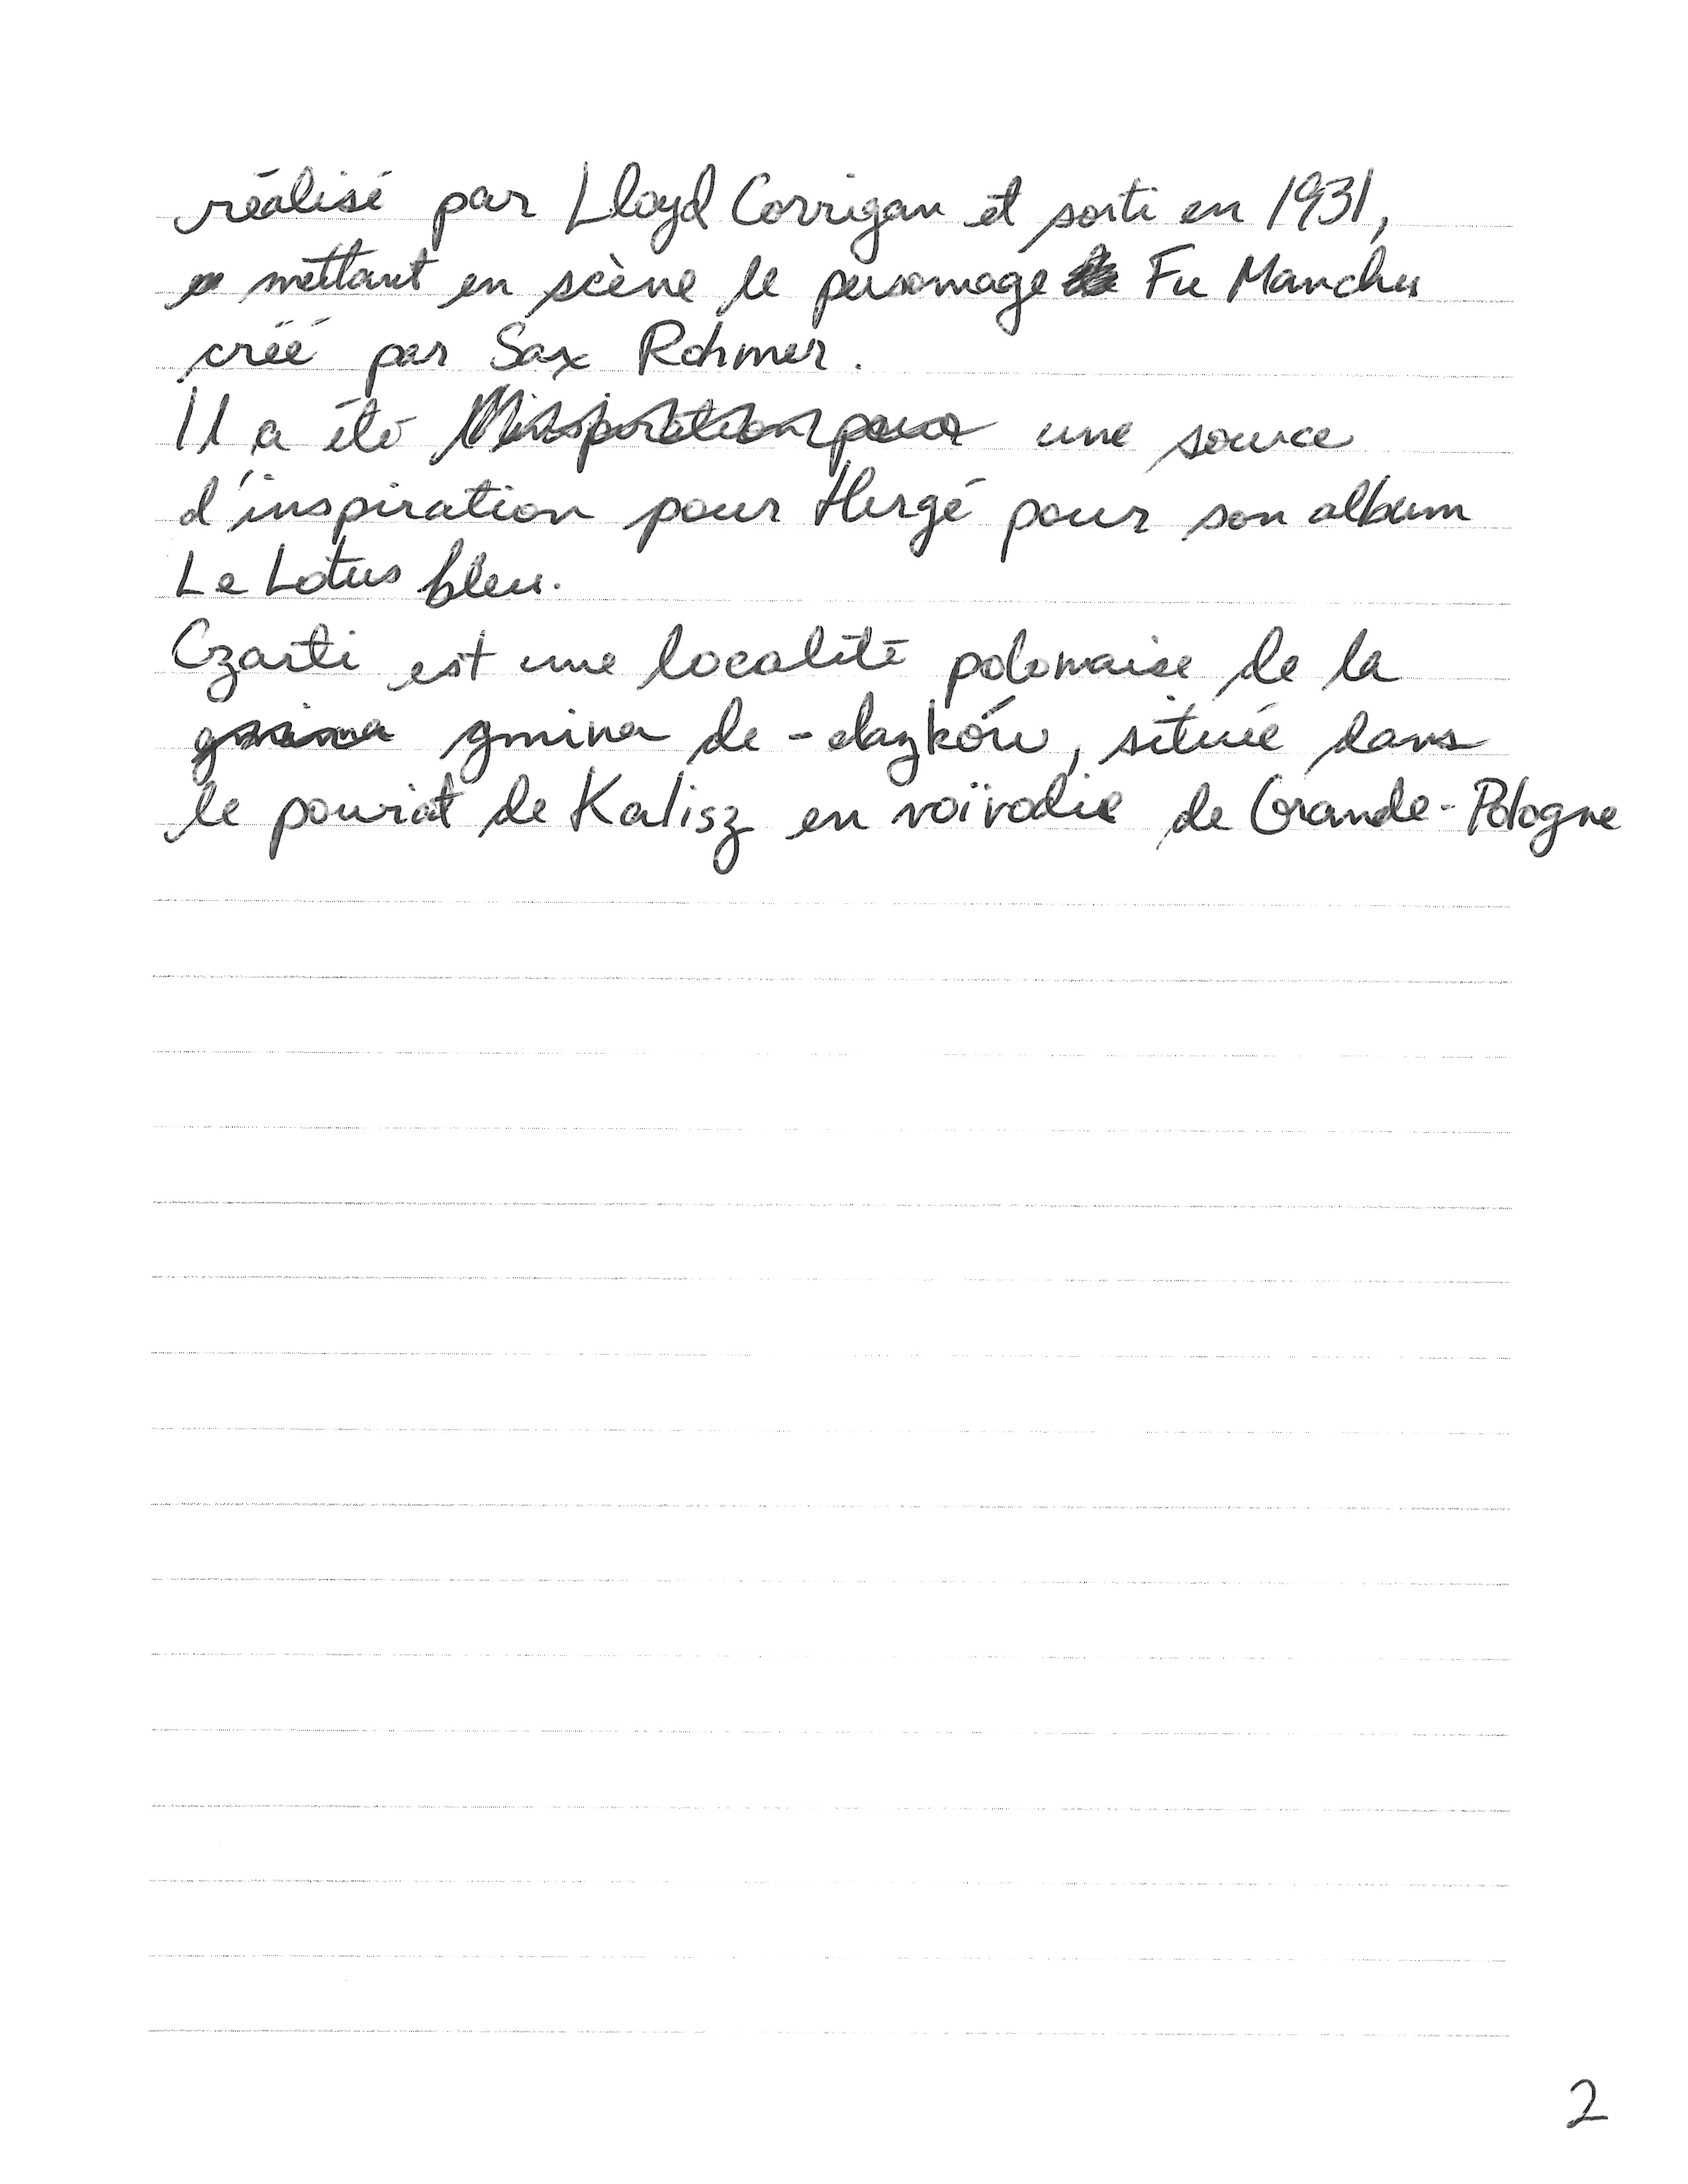 réalisé par Lloyd Corrigan et sorti en 1931,
mettant en scène le personnage Fu Manchu
créé par Sax Rohmer.
Il a été une source
d'inspiration pour Hergé pour son album
Le Lotus bleu.
Czarti est une localité polonaise de la
gmina de , située dans
le powiat de Kalisz en voïvodie de Grande-Pologne
2